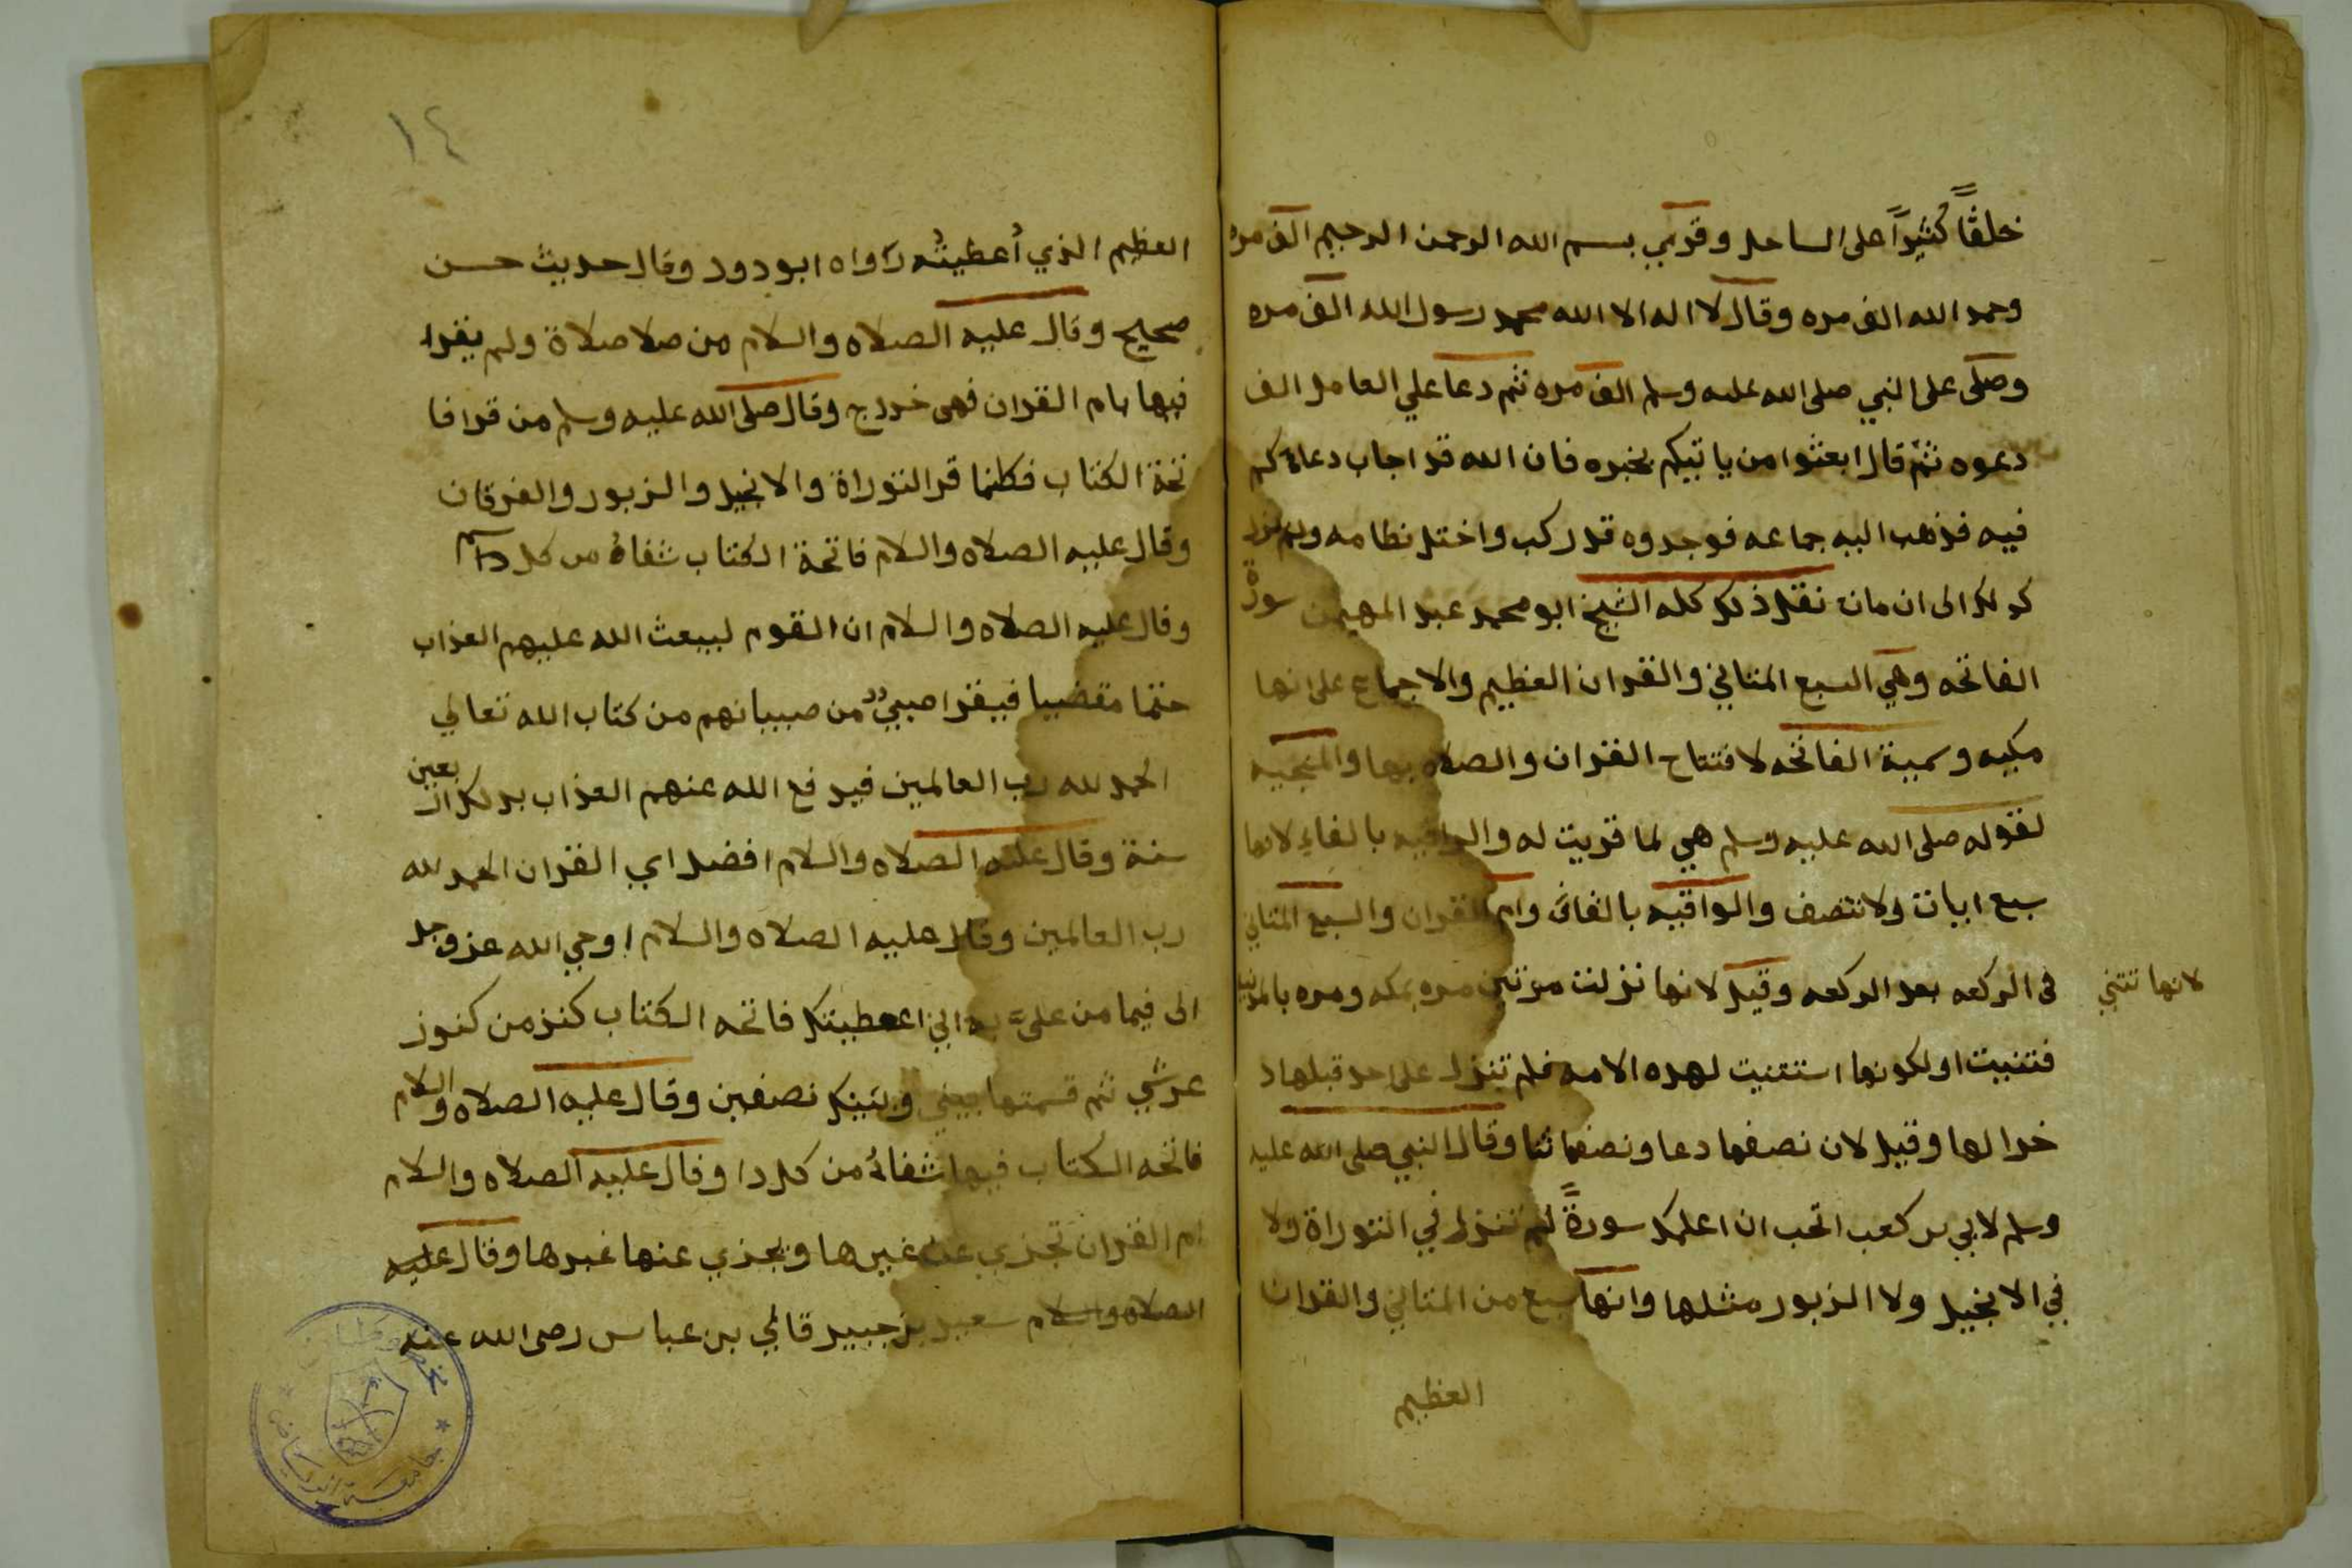 خلقًا كثيرًا على الساحل وقري بسم الله الرحمن الرحيم الف مره
وحمد الله الف مره وقال لا اله الا الله محمد رسول الله الف مره
وصلى على النبي صلى الله عليه وسلم الف مره ثم دعا علي العامل الف
دعوه ثم قال ابعثوا من ياتيكم بخبره فان الله قد اجاب دعاكم
فيه فذهب اليه جماعه فوجدوه قد ركب واختل نظامه ولم يزل
كدلك الى ان مات نقل ذلك كله الشيخ ابو محمد عبد المهيمن سورة
الفاتحه وهي السبع المثاني والقران العظيم والاجماع على انها
مكيه وسمية الفاتحه لافتتاح القران والصلاه بها والمنجيه
لقوله صلى الله عليه وسلم هي لما قريت له والوافيه بالفاء لانها
سبع ايات ولا تتصف والواقيه بالقاف وام القران والسبع المثاني
لانها تثني
فى الركعه بعد الركعه وقيل لانها نزلت مرتين مره بمكه ومره بالمدينة
فتثنيت او لكونها استثنيت لهده الامه فلم تنزل على احد قبلها د
خرا لها وقيل لان نصفها دعا ونصفها ثنا وقال النبي صلى الله عليه
وسلم لابي بن كعب اتحب ان اعلمك سورةً لم تنزل في التوراة ولا
في الانجيل ولا الزبور مثلها وانها سبع من المثاني والقران
العظيم
١٤
العظيم الذي أعطيتُه رواه ابو دود وقال حديث حسن
صحيح وقال عليه الصلاه والسلام من صلا صلاة ولم يقرا
فيها بام القران فهى خداج وقال صلى الله عليه وسلم من قرا فا
تحة الكتاب فكانما قرا التوراة والانجيل والزبور والفرقان
وقال عليه الصلاه والسلام فاتحة الكتاب شفاءٌ من كل دآ
وقال عليه الصلاه والسلام ان القوم ليبعث الله عليهم العذاب
حتما مقضيا فيقرا صبيٌ من صبيانهم من كتاب الله تعالي
الحمد لله رب العالمين فيرفع الله عنهم العذاب بدلك اربعين
سنة وقال عليه الصلاه والسلام افضل اي القران الحمد لله
رب العالمين وقال عليه الصلاه والسلام اوحي الله عز وجل
الى فيما من عليَّ به اني اعطيتك فاتحه الكتاب كنز من كنوز
عرشي ثم قسمتها بيني وبينك نصفين وقال عليه الصلاه والسلام
فاتحه الكتاب فيها شفاءُ من كل دا وقال عليه الصلاه والسلام
ام القران تجزي عن غيرها ويجزي عنها غيرها وقال عليه
الصلاه والسلام سعيد بن جبير قال لي بن عباس رضى الله عنه
جامعة الرياض